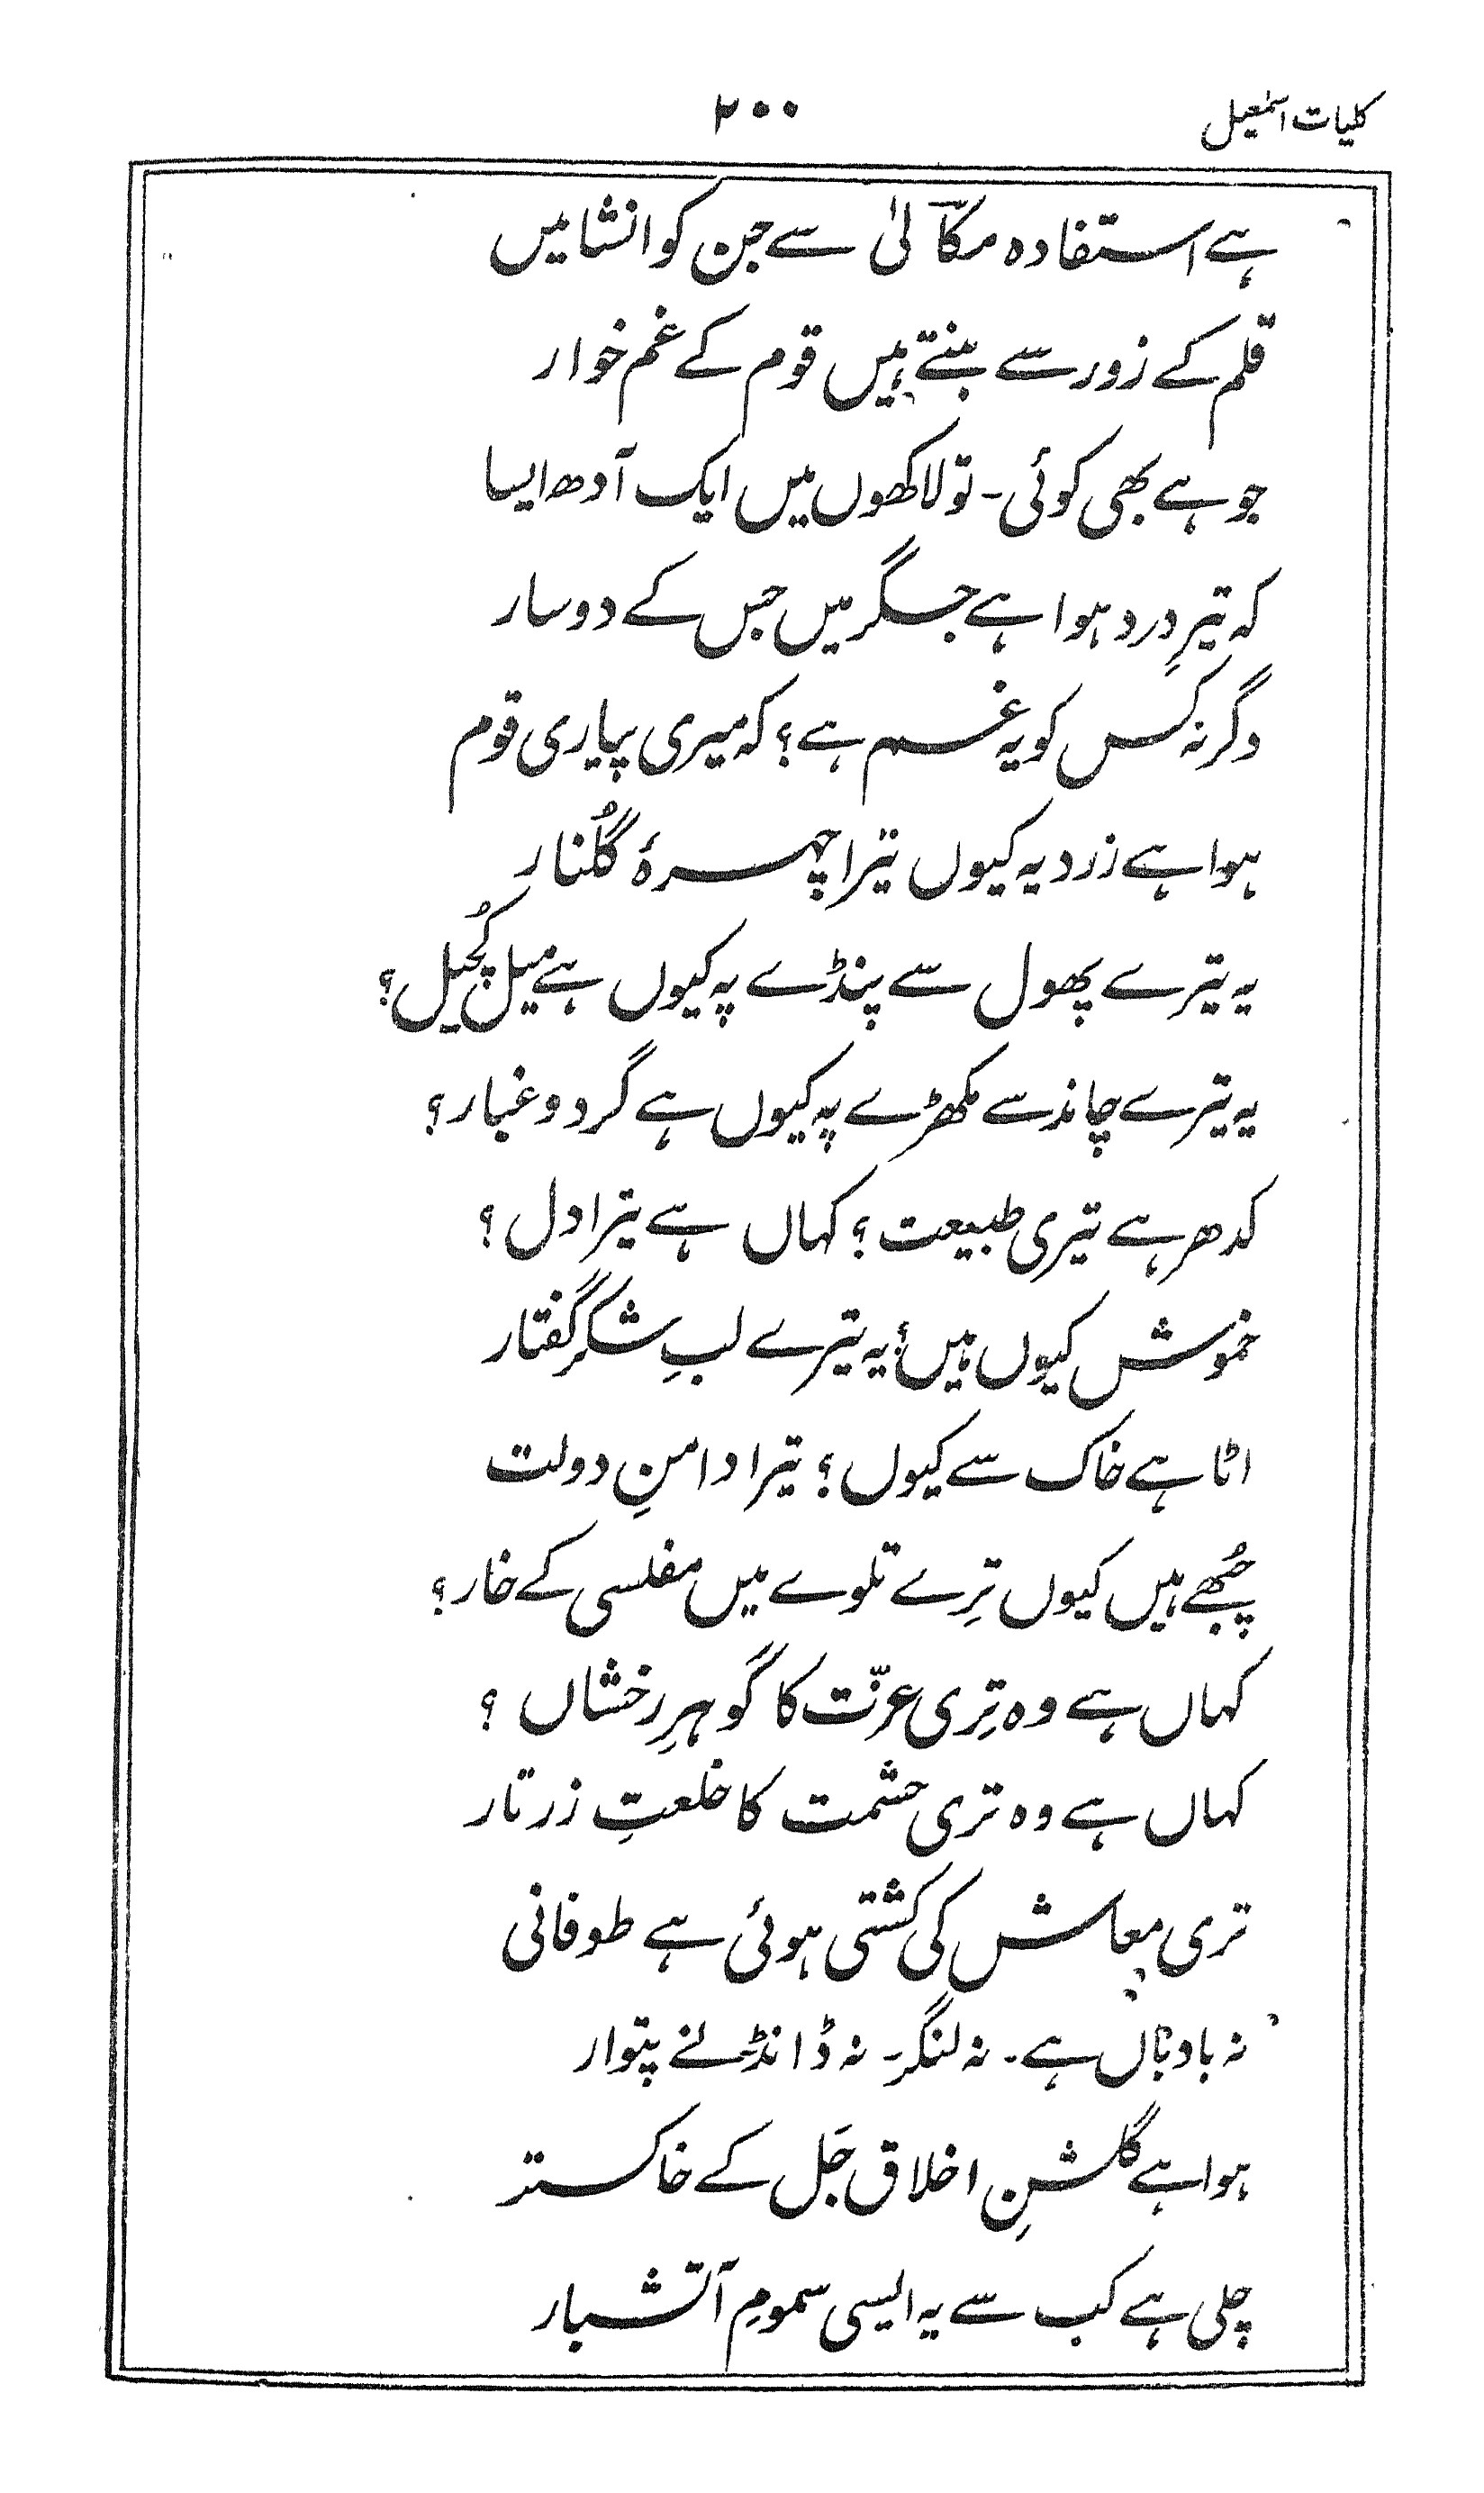 کلیات اسمٰعیل
۲۰۰
ہے استفادہ مکآلیٰ سے جن کو انشا میں
قلم کے زور سے بنتے ہیں قوم کے غم خوار
جو ہے بھی کوئی۔ تو لاکھوں میں ایک آدھ ایسا
کہ تیرِ درد ہوا ہے جگر میں جس کے دوسار
وگرنہ کس کو یہ غم ہے؟ کہ میری پیاری قوم
ہوا ہے زرد یہ کیوں تیرا چہرۂ گُلنار
یہ تیرے پھول سے پنڈے پہ کیوں ہے میل کُچیل؟
یہ تیرے چاند سے مکھڑے پہ کیوں ہے گرد و غبار؟
کدھر ہے تیری طبیعت؟ کہاں ہے تیرا دل؟
خموش کیوں ہیں؟ یہ تیرے لبِ شکر گفتار
اٹا ہے خاک سے کیوں؟ تیرا دامنِ دولت
چُبھے ہیں کیوں تِرے تلوے میں مفلسی کے خار؟
کہاں ہے وہ تِری عزّت کا گوہرِ رخشاں؟
کہاں ہے وہ تری حشمت کا خلعتِ زر تار
تری معاش کی کشتی ہوئی ہے طوفانی
نہ بادباں ہے۔ نہ لنگر۔ نہ ڈانڈ نے پتوار
ہوا ہے گلشنِ اخلاق جَل کے خاکستر
چلی ہے کب سے یہ ایسی سمومِ آتشبار